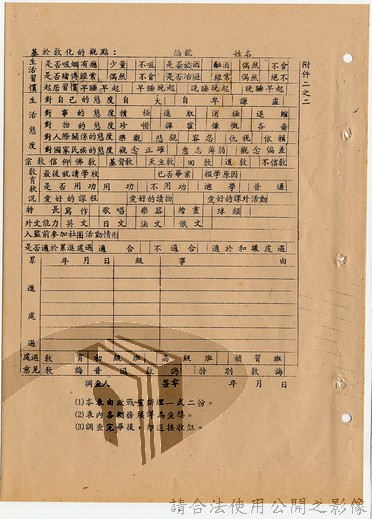 附件二之二
基於教化的觀點： 編號 姓名
生活習慣 是否吸烟 有癮 少量 不吸 是否飲酒 酗酒 偶然 不會
是否賭博 經常 偶然 不會 是否冶遊 經常 偶然 絕不
起居習慣 早睡早起 早睡晚起 晚睡晚起 晚睡早起
生活態度 對自己的態度 自大 自卑 謙虛
對事的態度 積極進取 消極退縮
對物的態度 珍惜 揮霍 慷慨 吝嗇
對人際關係的態度 樂觀 悲觀 容忍 仇視 依賴
對國家民族的態度 觀念正確 意志薄弱 觀念偏差
宗教信仰 佛教 基督教 天主教 回教 道教 不信教
教育狀況 最後就讀學校 已否畢業 輟學原因
是否用功 用功 不用功 逃學 普通
愛好的課程 愛好的讀物 愛好的課外活動
特長 寫作 歌唱 樂器 繪畫 球類
外文能力 英文 日文 法文 俄文
入監前參加社團活動情形
是否適於累進處遇 適合 不適合 適於和緩處遇
累進處遇 年月日 級 事由
處遇意見 教育 初級班 高級班 補習班
教誨 普通教誨 特別教誨
調查人 簽章 年 月 日
(1)本表由政戰室辦理一式二份。
(2)表內各欄務須詳為查填。
(3)調查完畢後，
請合法使用公開之影像